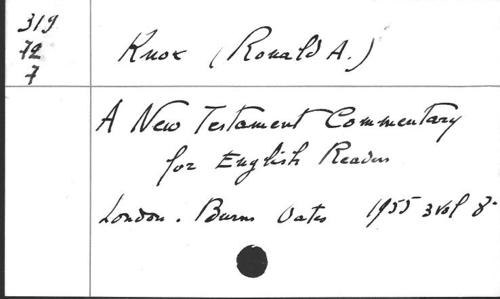 319
72
7
Knox (Ronald A.)
A New Testament Commentary
for English Readers
London. Burns Oates 1955 3 vol 8°